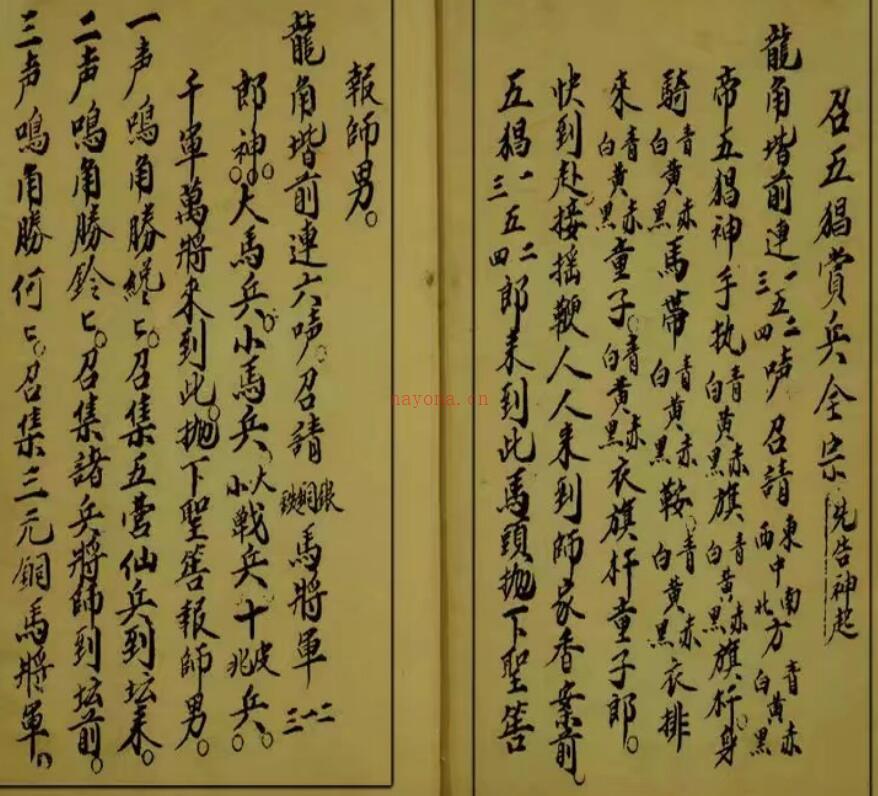 召五猖賞兵全宗 先告神起
龍角堦前連一二三四五声召請東南西北中方青赤白黑黃
帝五猖神手执青赤白黑黃旗青赤白黑黃旗杆身
騎青赤白黑黃馬帶青赤白黑黃鞍青赤白黑黃衣排
來青赤白黑黃童子青赤白黑黃衣旗杆童子郎
快到赴接搖鞭人人来到師家香案前
五猖一二三四五郎来到此馬頭抛下聖筶
報師男
龍角堦前連六声召請銀銅鉄馬將軍一二三
郎神大馬兵小馬兵大小戦兵十兵
千軍萬將来到此抛下聖筶報師男
一声鳴角勝匕召集五营仙兵到坛来
二声鳴角勝鈴匕召集諸兵將師到坛前
三声鳴角勝何匕召集三元銅馬將軍
nayona.cn